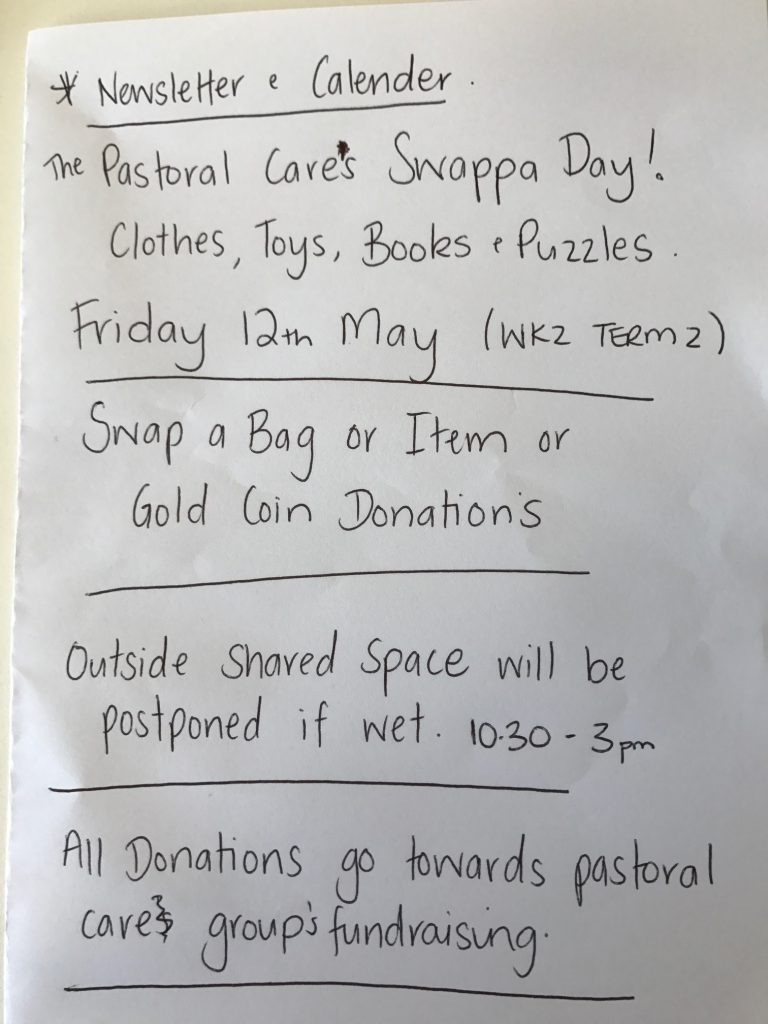 * Newsletter e Calender.
The Pastoral Care's Swappa Day!
Clothes, Toys, Books e Puzzles.
Friday 12th May (WK2 TERM 2)
Swap a Bag or Item or
Gold Coin Donation's
Outside Shared Space will be
postponed if wet. 10.30 - 3pm
All Donations go towards pastoral
care's group's fundraising.